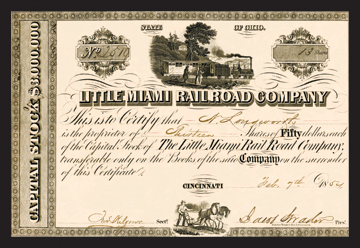 STATE OF OHIO.
No
13
CAPITAL STOCK $3,000,000
LITTLE MIAMI RAILROAD COMPANY
This is to Certify that N. Longworth
is the proprietor of Thirteen Shares of Fifty dollars each
of the Capital Stock of The Little Miami Rail Road Company;
transferable only on the Books of the said Company on the surrender
of this Certificate.
CINCINNATI Feb. 7th 1854
Secy.
Jacob Strader Prest.